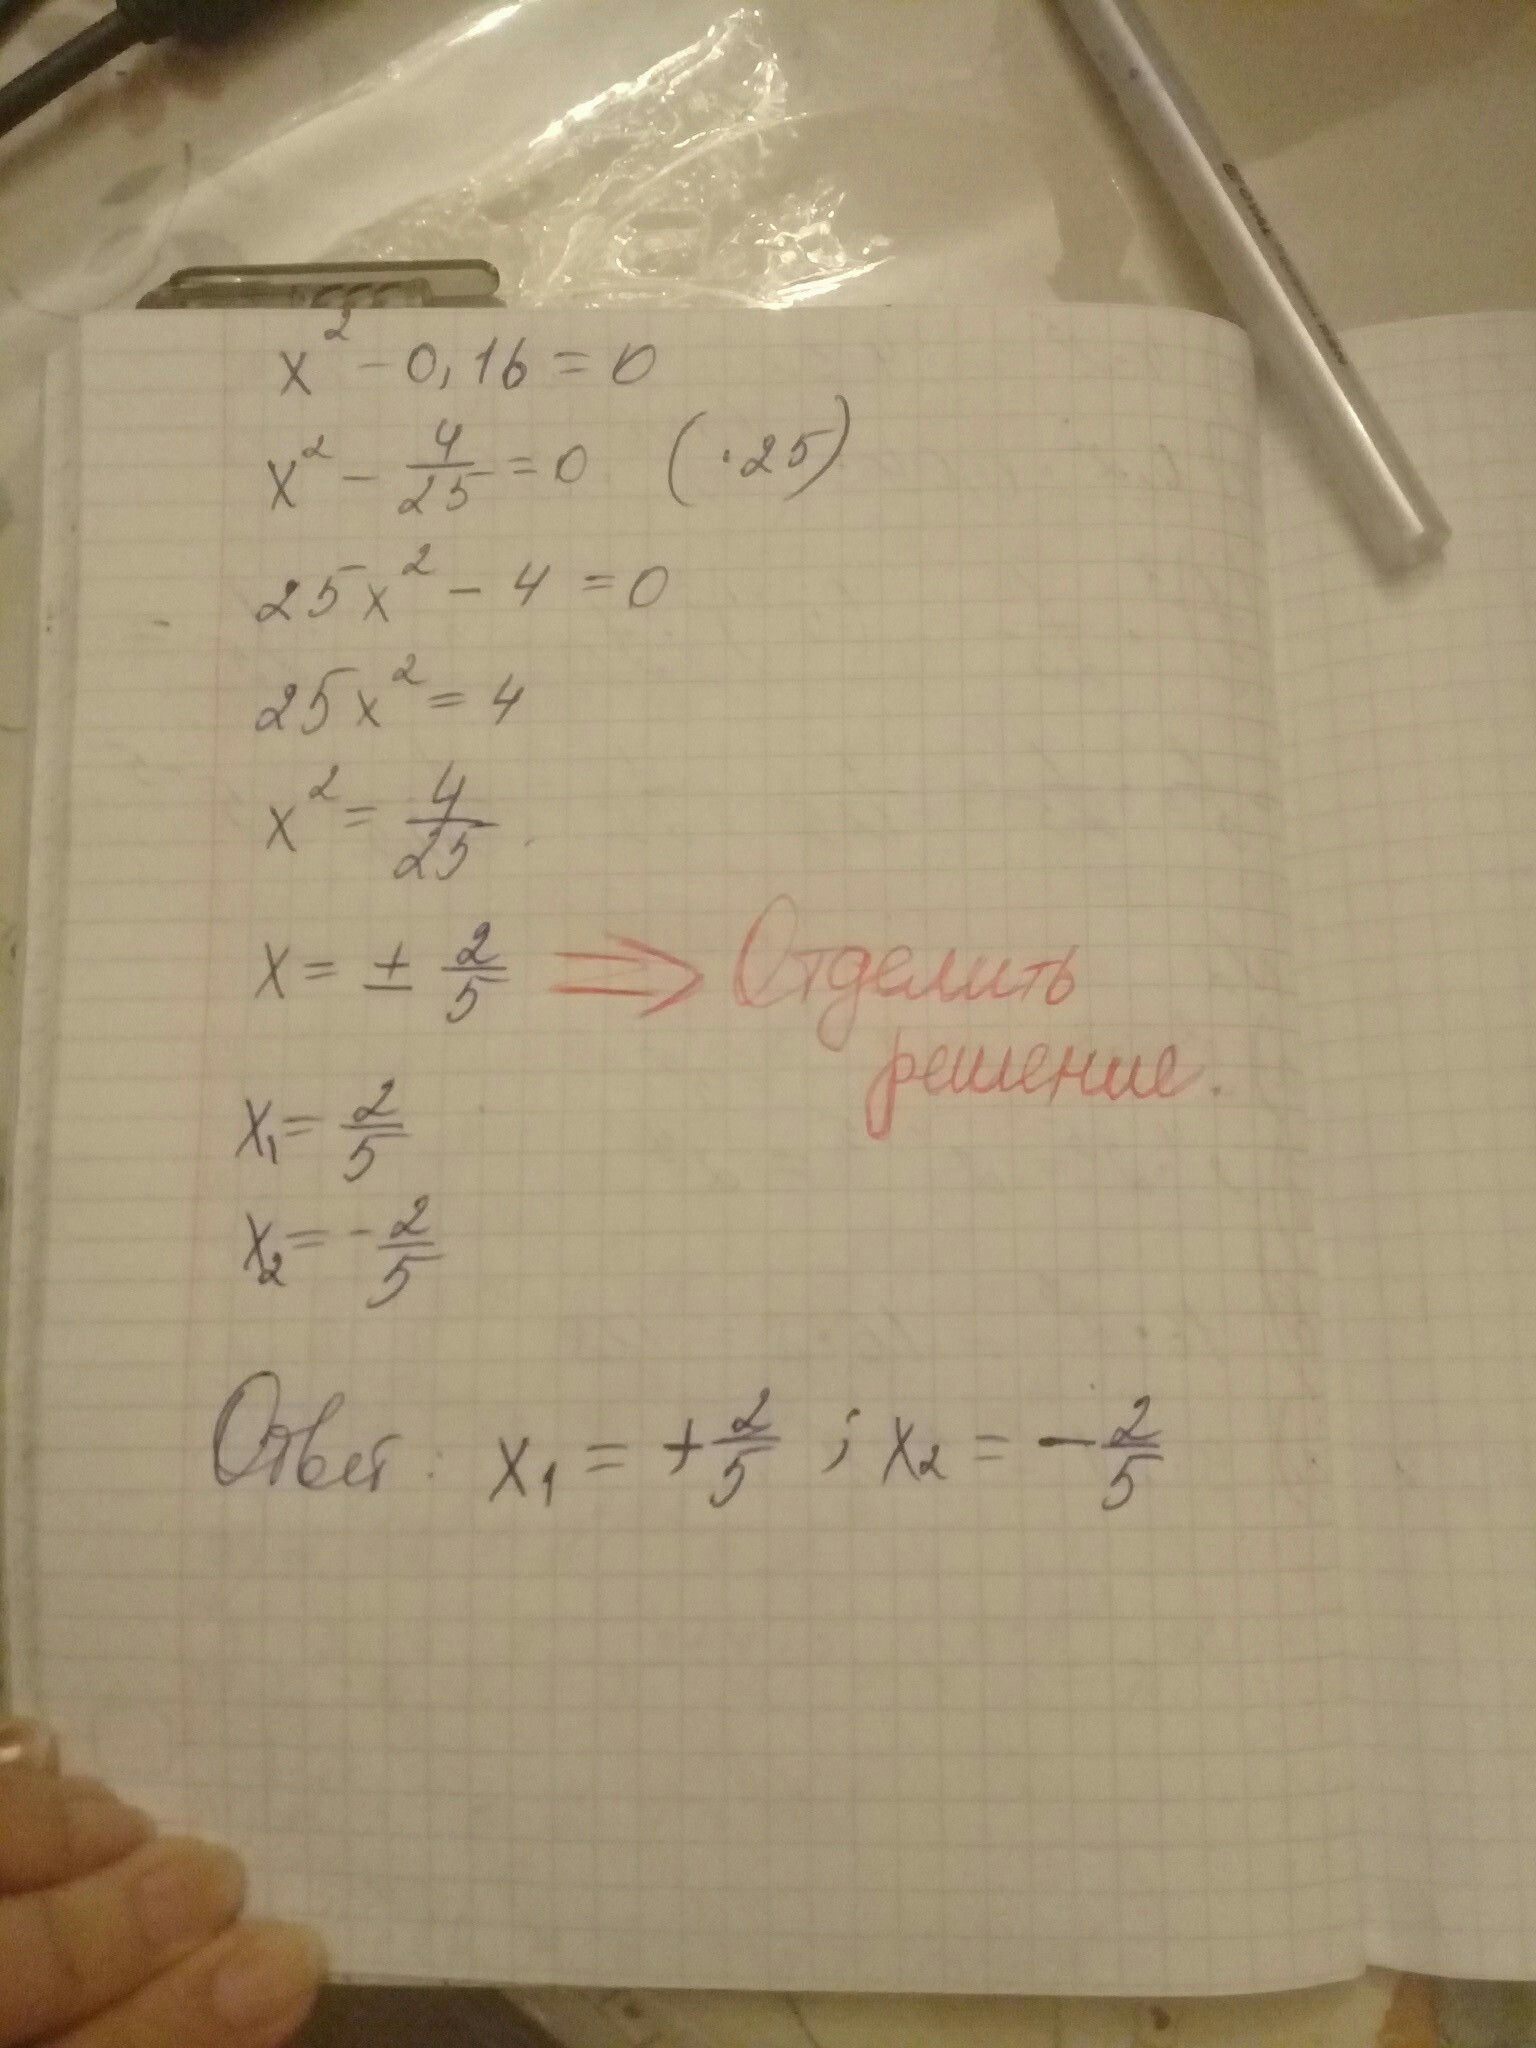 x² - 0,16 = 0
x² - 4/25 = 0 (·25)
25x² - 4 = 0
25x² = 4
x² = 4/25
x = ± 2/5 ⇒ Отделить
решение.
x₁ = 2/5
x₂ = - 2/5
Ответ: x₁ = + 2/5 ; x₂ = - 2/5